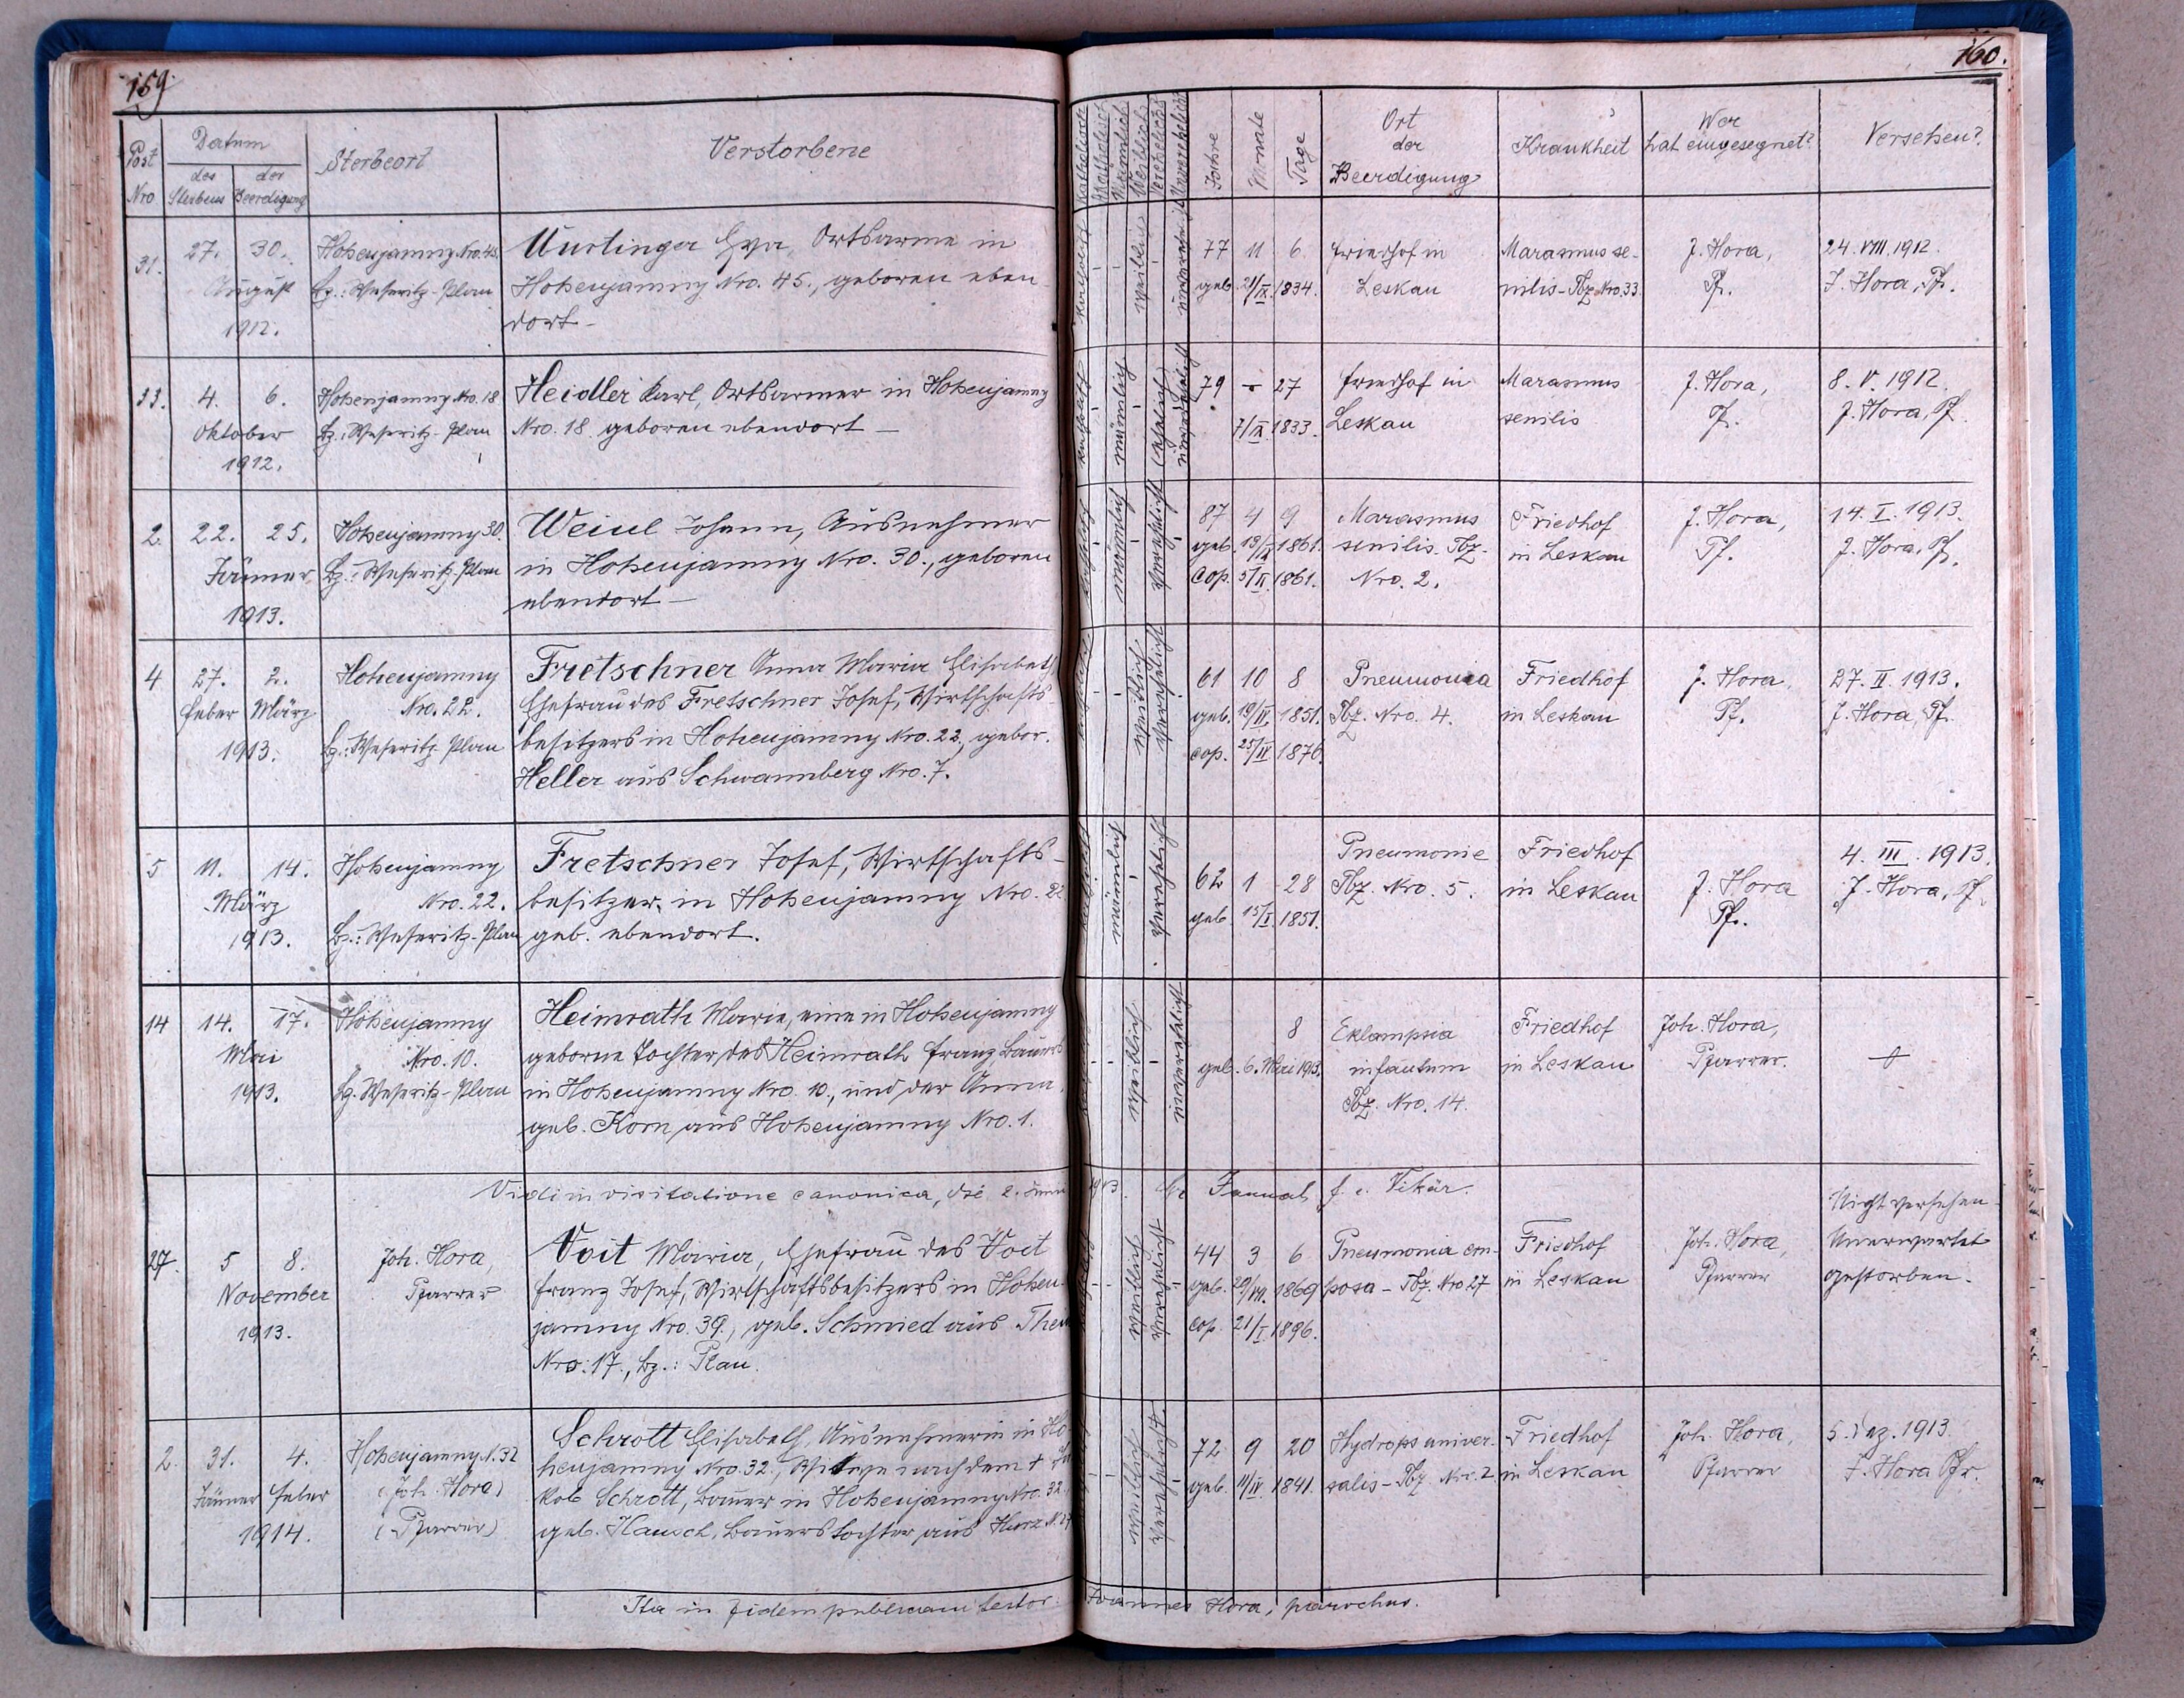 159.
160.
Post Nro
Datum
des Sterbens
der Beerdigung
Sterbeort
Verstorbene
Katholisch
Akatholisch
Männlich
Weiblich
Verehelicht
Unverehelicht
Jahre
Monate
Tage
Ort
der
Beerdigung
Krankheit
Wer
hat eingesegnet?
Versehen?
31.
27. 30.
August
1912.
Hohenjamny Nro. 45.
Bz.: Weseritz-Plan
Wurtinger Eva, Ortsarme in
Hohenjamny Nro. 45., geboren eben
dort –
katholisch
weiblich
unverehelicht
77 11 6
geb. 21/IX. 1834.
Friedhof in
Leskau
Marasmus se-
nilis – Tbz. Nro. 33
J. Hora,
Pf.
24. VIII. 1912.
J. Hora, Pf.
33.
4. 6.
Oktober
1912.
Hohenjamny Nro. 18
Bz.: Weseritz-Plan
Heidler Karl, Ortsarmer in Hohenjamny
Nro. 18. geboren ebendort –
katholisch
männlich
(ehelich)
unverehelicht
79 – 27
7/IX. 1833.
Friedhof in
Leskau
Marasmus
senilis
J. Hora,
Pf.
8. V. 1912.
J. Hora, Pf.
2.
22. 25.
Jänner
1913.
Hohenjamny 30.
Bz.: Weseritz-Plan
Weiul Johann, Ausnehmer
in Hohenjamny Nro. 30., geboren
ebendort –
katholisch
männlich
verehelicht
87 4 9
geb. 13/IX 1861.
Cop. 5/II. 1861.
Marasmus
senilis. Tbz.
Nro. 2.
Friedhof
in Leskau
J. Hora,
Pf.
14. I. 1913.
J. Hora, Pf.
4
27. 2.
Feber März
1913.
Hohenjamny
Nro. 22.
Bz.: Weseritz Plan
Fretschner Anna Maria Elisabeth
Ehefrau des Fretschner Josef, Wirtschafts-
besitzers in Hohenjamny Nro. 22., gebor.
Heller aus Schwannberg Nro. 7.
katholisch
weiblich
verehelicht
61 10 8
geb. 19/IV. 1851.
cop. 25/IV 1876.
Pneumonia
Tbz. Nro. 4.
Friedhof
in Leskau
J. Hora,
Pf.
27. II. 1913.
J. Hora, Pf.
5
11. 14.
März
1913.
Hohenjamny
Nro. 22.
Bz.: Weseritz-Plan
Fretschner Josef, Wirtschafts-
besitzer, in Hohenjamny Nro. 22
geb. ebendort.
katholisch
männlich
verehelicht
62 1 28
geb. 15/I. 1851.
Pneumonie
Tbz. Nro. 5.
Friedhof
in Leskau
J. Hora
Pf.
4. III. 1913.
J. Hora, Pf.
14
14. 17.
Mai
1913.
Hohenjamny
Nro. 10.
Bz. Weseritz-Plan
Heimrath Marie, eine in Hohenjamny
geborene Tochter des Heimrath Franz, Bauers
in Hohenjamny Nro. 10., und der Anna
geb. Korn aus Hohenjamny Nro. 1.
weiblich
unverehelicht
8
geb. 6. Mai 1913.
Eklampsia
infantum
Tbz. Nro. 14.
Friedhof
in Leskau
Joh. Hora,
Pfarrer.
Vidi in visitatione canonica, die 2. Juni 1913. f. e. Vikär.
27.
5 8.
November
1913.
Joh. Hora,
Pfarrer
Voit Maria, Ehefrau des Voit
Franz Josef, Wirtschaftsbesitzers in Hohen-
jamny Nro. 39., geb. Schmied aus
Nro. 17., Bz.: Plan.
weiblich
verehelicht
44 3 6
geb. 29/VII. 1869
cop. 21/I. 1896.
Pneumonia cru-
posa – Tbz. Nro 27
Friedhof
in Leskau
Joh. Hora,
Pfarrer
Nicht versehen
Unerwartet
gestorben.
2.
31. 4.
Jänner Feber
1914.
Hohenjamny N. 32
(Joh. Hora)
(Pfarrer)
Schrott Elisabeth, Ausnehmerin in Ho-
henjamny Nro. 32., Witwe nach dem † Ja
kob Schrott, Bauer in Hohenjamny Nro. 32.,
geb. Hausch, Bauerstochter aus Hurz N. 27
weiblich
verehelicht.
72 9 20
geb. 11/IV. 1841.
Hydrops univer-
salis – Tbz. Nro. 2.
Friedhof
in Leskau
Joh. Hora,
Pfarrer
5. Dez. 1913.
J. Hora Pfr.
Ita in fidem publicam testor Joannes Hora, parochus.